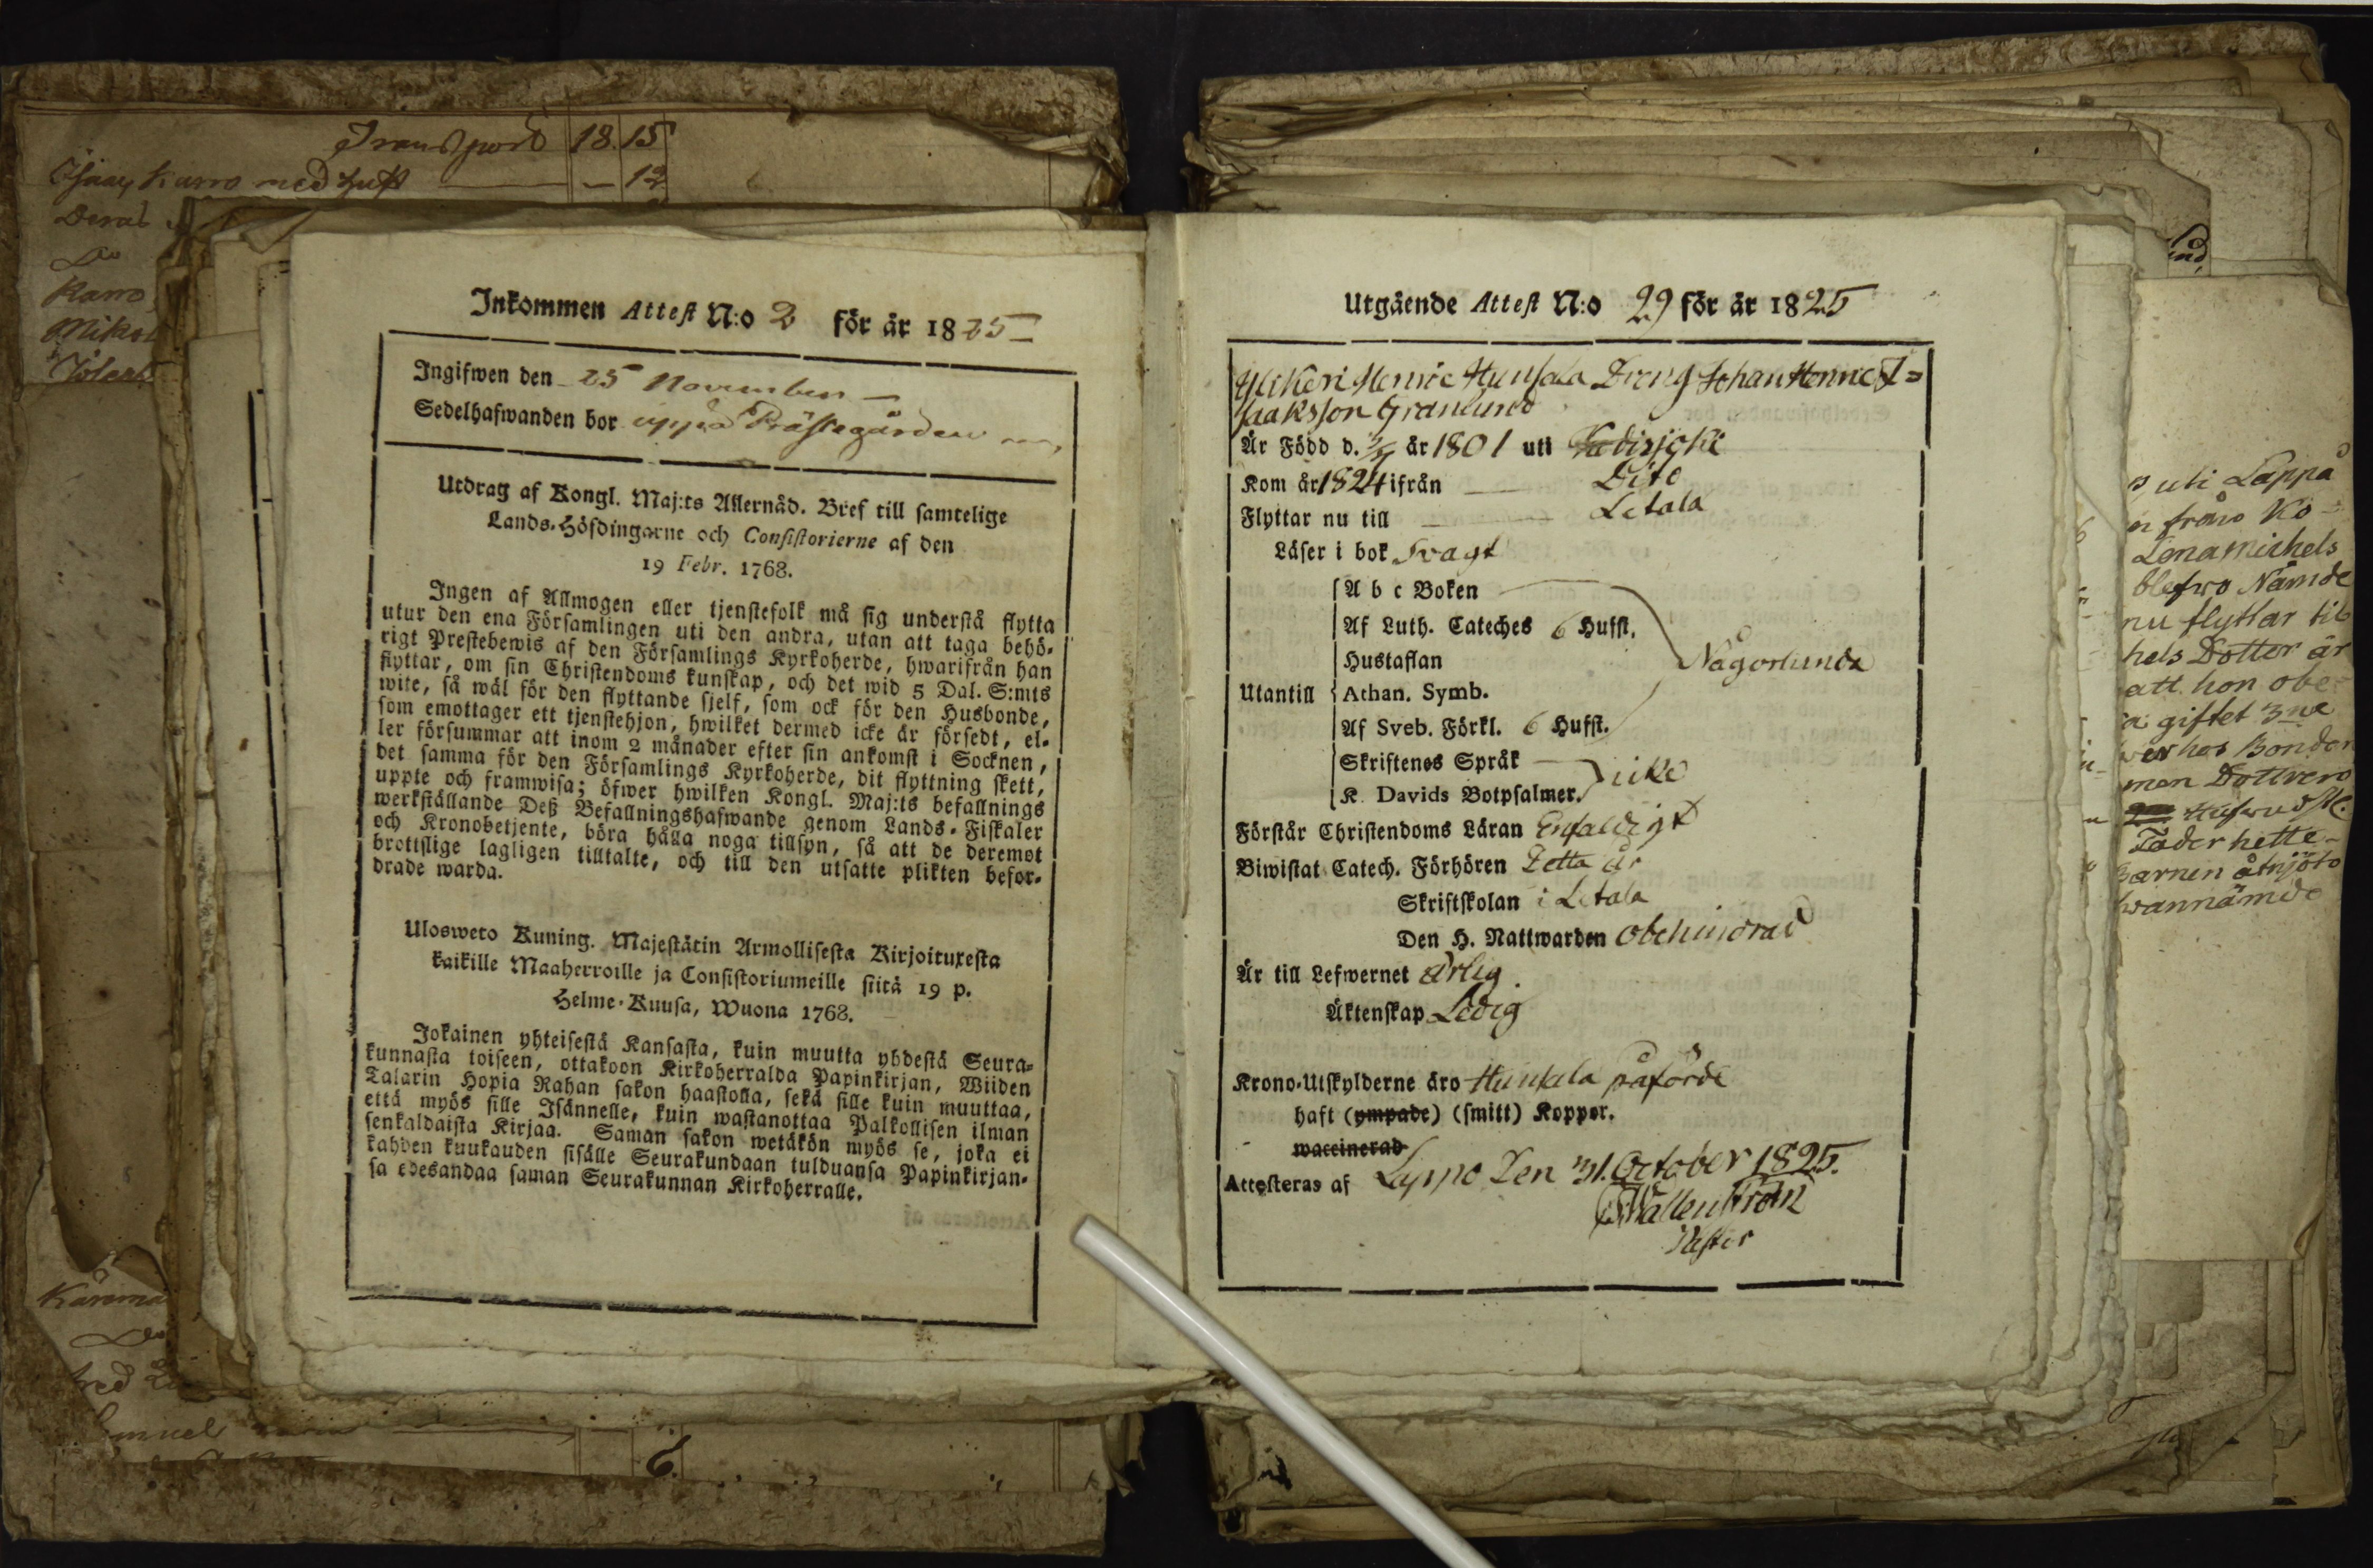 Transport 18. 15
med hust — 12
Karro
Inkommen Attest N:o 2 för år 1825
Ingifwen den 25 November
Sedelhafwanden bor uppå Prästegården
Utdrag af Kongl. Maj:ts Allernåd. Bref till samtelige
Lands-Höfdingarne och Consistorierne af den
19 Febr. 1768.
Ingen af Allmogen eller tjenstefolk må sig understå flytta
utur den ena Församlingen uti den andra, utan att taga behö-
rigt Prestebewis af den Församlings Kyrkoherde, hwarifrån han
flyttar, om sin Christendoms kunskap, och det wid 5 Dal. S:mts
wite, så wäl för den flyttande sjelf, som ock för den Husbonde,
som emottager ett tjenstehjon, hwilket dermed icke är försedt, el-
ler försummar att inom 2 månader efter sin ankomst i Socknen,
det samma för den Församlings Kyrkoherde, dit flyttning skett,
uppte och framwisa; öfwer hwilken Kongl. Maj:ts befallnings
werkställande Deß Befallningshafwande genom Lands-Fiskaler
och Kronobetjente, böra hålla noga tillsyn, så att de deremot
brottslige lagligen tilltalte, och till den utsatte plikten befor-
drade warda.
Ulosweto Kuning. Majestätin Armollisesta Kirjoituxesta
kaikille Maaherroille ja Consistoriumeille siitä 19 p.
Helme-Kuusa, Wuona 1768.
Jokainen yhteisestä Kansasta, kuin muutta yhdestä Seura-
kunnasta toiseen, ottakoon Kirkoherralda Papinkirjan, Wiiden
Talarin Hopia Rahan sakon haastolla, sekä sille kuin muuttaa,
että myös sille Isännelle, kuin wastanottaa Palkollisen ilman
senkaldaista Kirjaa. Saman sakon wetäkön myös se, joka ei
kahden kuukauden sisälle Seurakundaan tulduansa Papinkirjan-
sa edesandaa saman Seurakunnan Kirkoherralle.
Utgående Attest N:o 29 för år 1825
Henric Hunsala Dreng Johan Henric I=
saaksson Granlund
Är Född d. år 1801 uti
Kom år 1824 ifrån Dito
Flyttar nu till Letala
Läser i bok Swagt
A b c Boken
Af Luth. Cateches 6 Hufst.
Hustaflan Någorlunda
Utantill Athan. Symb.
Af Sveb. Förkl. 6 Hufst.
Skriftenes Språk
K. Davids Botpsalmer. icke
Förstår Christendoms Läran Enfaldigt
Biwistat Catech. Förhören Detta år
Skriftskolan i Letala
Den H. Nattwarden obehindrad
Är till Lefwernet ärlig
Äktenskap Ledig
Krono-Utskylderne äro Hunsala påförde
haft (ympade) (smitt) Koppor.
waccinerad
Attesteras af Lappo Den 31. October 1825.
Wallenström
Pastor
uti Lappå
n från Ko-
Lena Michels
blefwo Nämde
nu flyttar til
hels Dotter är
att hon obe-
a giftet 3ne
hos Bonden
men Dottren
Fader hette
Barnen åtnjöto